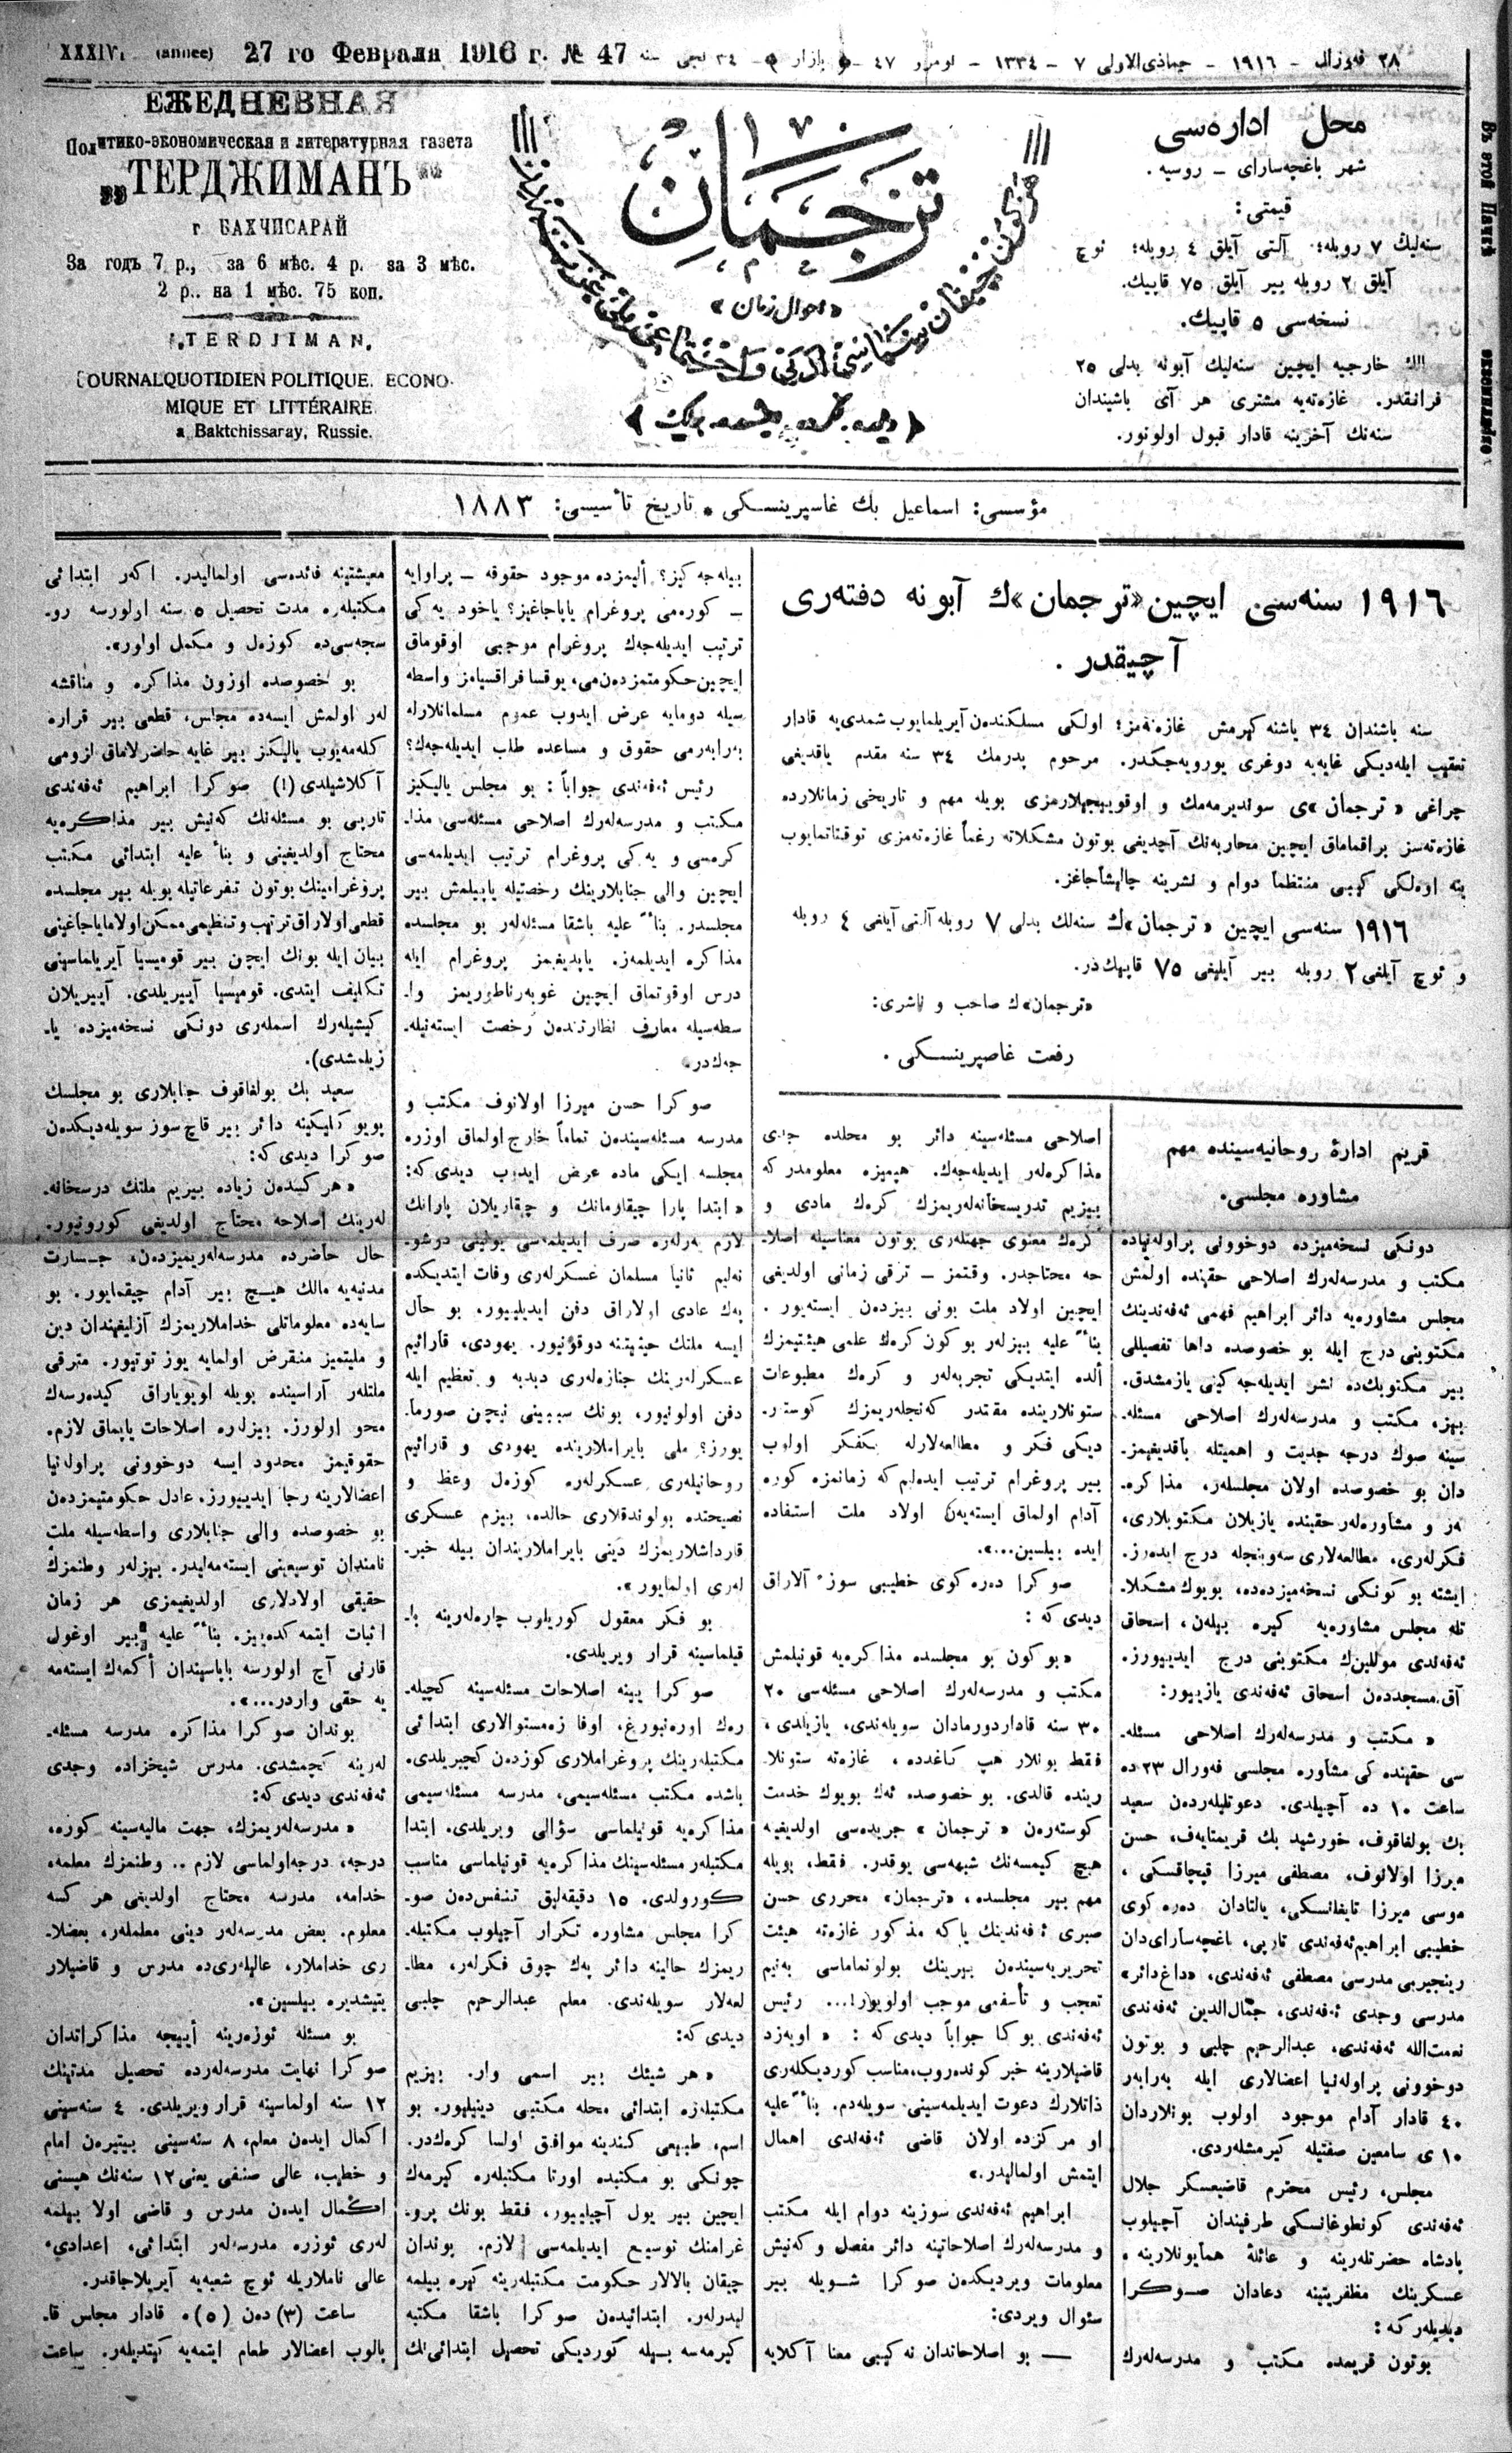 XXXIV. (année) 27 го Февраля 1916 г. № 47
٢٨ فورال – ١٩١٦ – جماذی‌الاولی ٧ – ١٣٣٤ – نومرو ٤٧ – بازار – ٣٤ نجی سنه
ЕЖЕДНЕВНАЯ
Политико-экономическая и литературная газета
„ТЕРДЖИМАНЪ“
г БАХЧИСАРАЙ
За годъ 7 р., за 6 мѣс. 4 р. за 3 мѣс.
2 р.. на 1 мѣс. 75 коп.
TERDJIMAN.
JOURNALQUOTIDIEN POLITIQUE. ECONO-
MIQUE ET LITTÉRAIRE
a Baktchissaray, Russie.
ترجمان
«احوال زمان»
«دیلده، فکرده، ایشده بیرلیك»
محل اداره‌سی
شهر باغچه‌سارای – روسیه .
قیمتی:
سنه‌لیك ٧ روبله؛ آلتی آیلق ٤ روبله؛ ئوچ
آیلق ٢ روبله بیر آیلق ٧٥ قاپیك.
نسخه‌سی ٥ قاپیك.
خارجیه ایچین سنه‌لیك آبونه بدلی ٢٥
فرانقدر. غازه‌ته‌یه مشتری هر آی باشیندان
سنه‌نك آخرینه قادار قبول اولونور.
مؤسسی: اسماعیل بك غاسپرینسكی • تاریخ تأسیسی: ١٨٨٣
١٩١٦ سنه‌سی ایچین «ترجمان»ك آبونه دفته‌ری
آچیقدر .
سنه باشندان ٣٤ یاشنه كیرمش غازه‌ته‌مز؛ اولكی مسلكندن آیریلمایوب شمدی‌یه قادار
تعقیب ایله‌دیكی غایه‌یه دوغری یورویه‌جكدر. مرحوم پدرمك ٣٤ سنه مقدم یاقدیغی
چراغی «ترجمان»ی سوندیرمه‌مك و اوقوییجیلارمزی بویله مهم و تاریخی زمانلارده
غازه‌ته‌سز براقماماق ایچین محاربه‌نك آچدیغی بوتون مشكلاته رغماً غازه‌ته‌مزی توقتاتمایوب
ینه اوه‌لكی كیبی منتظماً دوام و نشرینه چالیشاجاغز.
١٩١٦ سنه‌سی ایچین «ترجمان»ك سنه‌لك بدلی ٧ روبله آلتی آیلغی ٤ روبله
و ئوچ آیلغی ٢ روبله بیر آیلیغی ٧٥ قاپیك‌در.
«ترجمان»ك صاحب و ناشری:
رفعت غاصپرینسكی .
قریم ادارۀ روحانیه‌سینده مهم
مشاوره مجلسی.
دونكی نسخه‌میزده دوخوونی پراوله‌نیاده
مكتب و مدرسه‌لرك اصلاحی حقینده اولمش
مجلس مشاوره‌یه دائر ابراهیم فهمی ئه‌فه‌ندینك
مكتوبنی درج ایله بو خصوصده داها تفصیللی
بیر مكتوبك‌ده نشر ایدیله‌جه‌كینی یازمشدق.
بیز، مكتب و مدرسه‌لرك اصلاحی مسئله‌-
سینه صوك درجه جدیت و اهمیتله باقدیغیمز-
دان بو خصوصده اولان مجلسلر، مذاكره-
لر و مشاوره‌لر حقینده یازیلان مكتوبلاری،
فكرلری، مطالعه‌لاری سه‌وینجله درج ایده‌رز.
ایشته بو كونكی نسخه‌میزده‌ده، بویوك مشكلا-
تله مجلس مشاوره‌یه كیره بیلن، اسحاق
ئه‌فه‌ندی موللین‌ك مكتوبنی درج ایدییورز.
آق‌مسجددن اسحاق ئه‌فه‌ندی یازییور:
« مكتب و مدرسه‌لرك اصلاحی مسئله-
سی حقینده كی مشاوره مجلسی فه‌ورال ٢٣ ده
ساعت ١٠ ده آچیلدی. دعوتلیلردن سعید
بك بولغاقوف، خورشید بك قریمتایف، حسن
میرزا اولانوف، مصطفی میرزا قیپچاقسكی ،
موسی میرزا تایغانسكی، یالتادان دره كوی
خطیبی ابراهیم ئه‌فه‌ندی تارپی، باغچه‌سارای‌دان
زینجیرلی مدرسی مصطفی ئه‌فه‌ندی، «داغ‌دائر»
مدرسی وجدی ئه‌فه‌ندی، جمال‌الدین ئه‌فه‌ندی
نعمت‌الله ئه‌فه‌ندی، عبدالرحیم چلبی و بوتون
دوخوونی پراوله‌نیا اعضالاری ایله برابر
٤٠ قادار آدام موجود اولوب بونلاردان
١٠ ی سامعین صفتیله كیرمشلردی.
مجلس، رئیس محترم قاضیعسكر جلال
ئه‌فه‌ندی كونطوغانسكی طرفیندان آچیلوب
پادشاه حضرتلرینه و عائلۀ همایونلارینه ،
عسكرینك مظفریتینه دعادان صوكرا
دیدیلر كه :
بوتون قریمده مكتب و مدرسه‌لرك
اصلاحی مسئله‌سینه دائر بو محلده جدی
مذاكره‌لر ایدیله‌جك. هپمیزه معلومدر كه
بیزیم تدریسخانه‌لریمزك كرك مادی و
كرك معنوی جهتلری بوتون معناسیله اصلا-
حه محتاجدر. وقتمز – ترقی زمانی اولدیغی
ایچین اولاد ملت بونی بیزدن ایسته‌یور .
بناءً علیه بیزلر بو كون كرك علمی هیئتیمزك
ألده ایتدیكی تجربه‌لر و كرك مطبوعات
ستونلارینده مقتدر كنجلریمزك كوستر-
دیكی فكر و مطالعه‌لارله همفكر اولوب
بیر پروغرام ترتیب ایده‌لیم كه زمانمزه كوره
آدام اولماق ایسته‌یه‌ن اولاد ملت استفاده
ایده بیلسین...».
صوكرا دره كوی خطیبی سوز آلاراق
دیدی كه :
«بو كون بو مجلسده مذاكره‌یه قونیلمش
مكتب و مدرسه‌لرك اصلاحی مسئله‌سی ٢٠
٣٠ سنه قاداردورمادان سویله‌ندی، یازیلدی ،
فقط بونلار هپ كاغدده ، غازه‌ته ستونلا-
رینده قالدی. بو خصوصده ئه‌ك بویوك خدمت
كوسترن «ترجمان» جریده‌سی اولدیغینه
هیچ كیمسه‌نك شبهه‌سی یوقدر. فقط، بویله
مهم بیر مجلسده، «ترجمان» محرری حسن
صبری ئه‌فه‌ندینك یا كه مذكور غازه‌ته هیئت
تحریریه‌سیندن بیرینك بولونماماسی به‌نیم
تعجب و تأسفمی موجب اولویور!... رئیس
ئه‌فه‌ندی بوكا جواباً دیدی كه : « اویه‌زد
قاضیلارینه خبر كونده‌روب، مناسب كوردیكلری
ذاتلارك دعوت ایدیلمه‌سینی سویله‌دم. بناءً علیه
او مركزده اولان قاضی ئه‌فه‌ندی اهمال
ایتمش اولمالیدر.»
ابراهیم ئه‌فه‌ندی سوزینه دوام ایله مكتب
و مدرسه‌لرك اصلاحاتینه دائر مفصل و كه‌نیش
معلومات ویردیكدن صوكرا شویله بیر
سئوال ویردی:
— بو اصلاحاتدان نه كیبی معنا آكلایه
بیله‌جه كیز؟ ألیمزده موجود حقوقه – پراوایه
– كوره‌می پروغرام یاپاجاغیز؟ یاخود یه‌كی
ترتیب ایدیله‌جه‌ك پروغرام موجبی اوقوماق
ایچین حكومتمزدن‌می، یوقسا فراقسیامز واسطه
سیله دومایه عرض ایدوب عموم مسلمانلارله
برابرمی حقوق و مساعده طلب ایدیله‌جه‌ك؟
رئیس ئه‌فه‌ندی جواباً : بو مجلس یالیكیز
مكتب و مدرسه‌لرك اصلاحی مسئله‌سی مذا-
كره‌سی و یه‌كی پروغرام ترتیب ایدیلمه‌سی
ایچین والی جنابلارینك رخصتیله یاپیلمش بیر
مجلسدر. بناءً علیه باشقا مسئله‌لر بو مجلسده
مذاكره ایدیلمه‌ز. یاپدیغیمز پروغرام ایله
درس اوقوتماق ایچین غوبه‌رناطوریمز وا-
سطه‌سیله معارف نظارتندن رخصت ایسته‌نیله-
جه‌ك‌در.
صوكرا حسن میرزا اولانوف مكتب و
مدرسه مسئله‌سیندن تماماً خارج اولماق اوزره
مجلسه ایكی ماده عرض ایدوب دیدی كه:
« ابتدا پارا چیقارمانك و چیقاریلان پارانك
لازم یرلره صرف ایدیلمه‌سی یولینی دوشو-
نه‌لیم ثانیا مسلمان عسكرلری وفات ایتدیكده
پك عادی اولاراق دفن ایدیلییور. بو حال
ایسه ملتك حیثیتنه دوقونیور. یهودی، قارائیم
عسكرلرینك جنازه‌لری دبدبه و تعظیم ایله
دفن اولونیور، بونك سببینی نیچین صورما-
یورز؟ ملی بایراملارینده یهودی و قارائیم
روحانیلری عسكرلره كوزه‌ل وعظ و
نصیحتده بولوندقلاری حالده، بیزم عسكری
قارداشلاریمزك دینی بایراملاریندان بیله خبر-
لری اولمایور ».
بو فكر معقول كوریلوب چاره‌لرینه با-
قیلماسینه قرار ویریلدی.
صوكرا یینه اصلاحات مسئله‌سینه كچیله-
رك اوره‌نبورغ، اوفا زه‌مستوالاری ابتدائی
مكتبلرینك پروغراملاری كوزدن كچیریلدی.
باشده مكتب مسئله‌سیمی، مدرسه مسئله‌سیمی
مذاكره‌یه قونیلماسی سؤالی ویریلدی. ابتدا
مكتبلر مسئله‌سینك مذاكره‌یه قونیلماسی مناسب
كورولدی. ١٥ دقیقه‌لیق تنفس‌دن صو-
كرا مجلس مشاوره تكرار آچیلوب مكتبله-
ریمزك حالینه دائر پك چوق فكرلر، مطا-
لعه‌لار سویله‌ندی. معلم عبدالرحیم چلبی
دیدی كه:
« هر شیئك بیر اسمی وار. بیزیم
مكتبلره ابتدائی محله مكتبی دینیلیور. بو
اسم، طبیعی كندینه موافق اولسا كرك‌در.
چونكی بو مكتبده اورتا مكتبلره كیرمه‌ك
ایچین بیر یول آچیلییور، فقط بونك پرو-
غرامنك توسیع ایدیلمه‌سی لازم. بوندان
چیقان بالالار حكومت مكتبلرینه كیره بیلمه
لیدرلر. ابتدائیدن صوكرا باشقا مكتبه
كیرمه‌سه بیله كوردیكی تحصیل ابتدائی‌نك
معیشتینه فائده‌سی اولمالیدر. اكر ابتدائی
مكتبلره مدت تحصیل ٥ سنه اولورسه رو-
سجه‌سی‌ده كوزه‌ل و مكمل اولور».
بو خصوصده اوزون مذاكره و مناقشه
لر اولمش ایسه‌ده مجلس، قطعی بیر قراره
كله‌مه‌یوب یالیكز بیر غایه حاضرلاماق لزومی
آكلاشیلدی (!) صوكرا ابراهیم ئه‌فه‌ندی
تارپی بو مسئله‌نك كه‌نیش بیر مذاكره‌یه
محتاج اولدیغینی و بناءً علیه ابتدائی مكتب
پروغرامینك بوتون تفرعاتیله بویله بیر مجلسده
قطعی اولاراق ترتیب و تنظیمی ممكن اولامایاجاغینی
بیان ایله بونك ایچن بیر قومیسیا آیریلماسینی
تكلیف ایتدی. قومیسیا آییریلدی. آییریلان
كیشیلرك اسملری دونكی نسخه‌میزده یا-
زیلمشدی).
سعید بك بولغاقوف جنابلاری بو مجلسك
بویوكلیكینه دائر بیر قاچ سوز سویله‌دیكدن
صوكرا دیدی كه:
« هر كسدن زیاده بیزیم ملتك درسخانه-
لرینك اصلاحه محتاج اولدیغی كورونیور.
حال حاضرده مدرسه‌لریمیزدن، جسارت
مدنیه‌یه مالك هیچ بیر آدام چیقمایور. بو
سایه‌ده معلوماتلی خداملاریمزك آزلیغندان دین
و ملیتمیز منقرض اولمایه یوز توتیور. مترقی
ملتلر آراسینده بویله اویویاراق كیده‌رسه‌ك
محو اولورز. بیزلره اصلاحات یاپماق لازم.
حقوقیمز محدود ایسه دوخوونی پراوله‌نیا
اعضالارینه رجا ایدییورز. عادل حكومتیمزدن
بو خصوصده والی جنابلاری واسطه‌سیله ملت
نامندان توسیعنی ایسته‌مه‌لیدر. بیزلر وطنمزك
حقیقی اولادلاری اولدیغیمزی هر زمان
اثبات ایتمه‌كده‌ییز. بناءً علیه بیر اوغول
قارنی آچ اولورسه باباسیندان أكمك ایسته‌مه
یه حقی واردر...».
بوندان صوكرا مذاكره مدرسه مسئله-
لرینه كچمشدی. مدرس شیخزاده وجدی
ئه‌فه‌ندی دیدی كه:
« مدرسه‌لریمزك، جهت مالیه‌سینه كوره،
درجه، درجه اولماسی لازم .. وطنمزك معلمه،
خدامه، مدرسه محتاج اولدیغی هر كسه
معلوم. بعض مدرسه‌لر دینی معلملر، بعضلا-
ری خداملار، عالیلری‌ده مدرس و قاضیلار
یتیشدیره بیلسین».
بو مسئله ئوزه‌رینه أییجه مذاكراتدان
صوكرا نهایت مدرسه‌لرده تحصیل مدتینك
١٢ سنه اولماسینه قرار ویریلدی. ٤ سنه‌سینی
اكمال ایدن معلم، ٨ سنه‌سینی بیتیرن امام
و خطیب، عالی صنفی یعنی ١٢ سنه‌نك هپسنی
اكمال ایدن مدرس و قاضی اولا بیلمه
لری ئوزره مدرسه‌لر ابتدائی، اعدادی،
عالی ناملاریله ئوچ شعبه‌یه آیریلاجاقدر.
ساعت (٣) دن (٥)ه قادار مجلس قا-
پالوب اعضالار طعام ایتمه‌یه كیتدیلر. ساعت